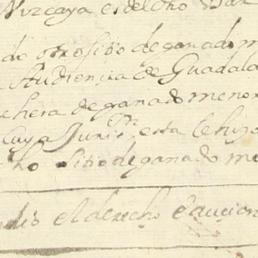 Vizcaya es del dho
dio otro sitio de ganado m
Audiencia de Guadala
chera de ganado menor
cuya Juris.on esta le hizo
ho sitio de ganado me
dio el derecho